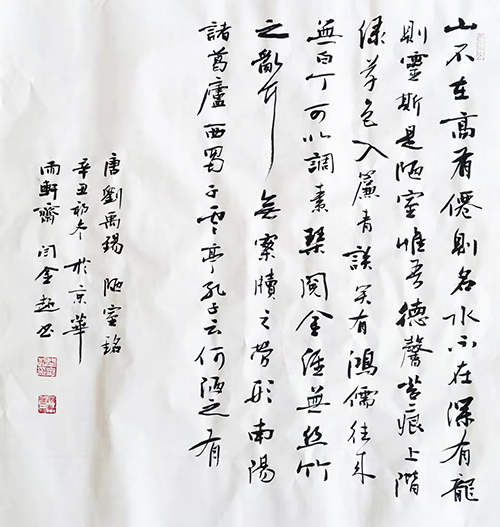 山不在高有僊則名水不在深有龍
則靈斯是陋室惟吾德馨苔痕上階
緑草色入簾青談笑有鴻儒往来
無白丁可以調素琴閱金經無丝竹
之亂耳無案牘之勞形南陽
諸葛廬西蜀子雲亭孔子云何陋之有
唐劉禹錫 陋室銘
辛丑初冬於京華
雨軒齋 闫金书